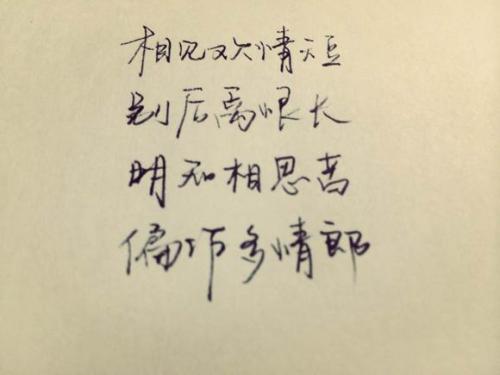 相见欢情短
别后离恨长
明知相思苦
偏作多情郎